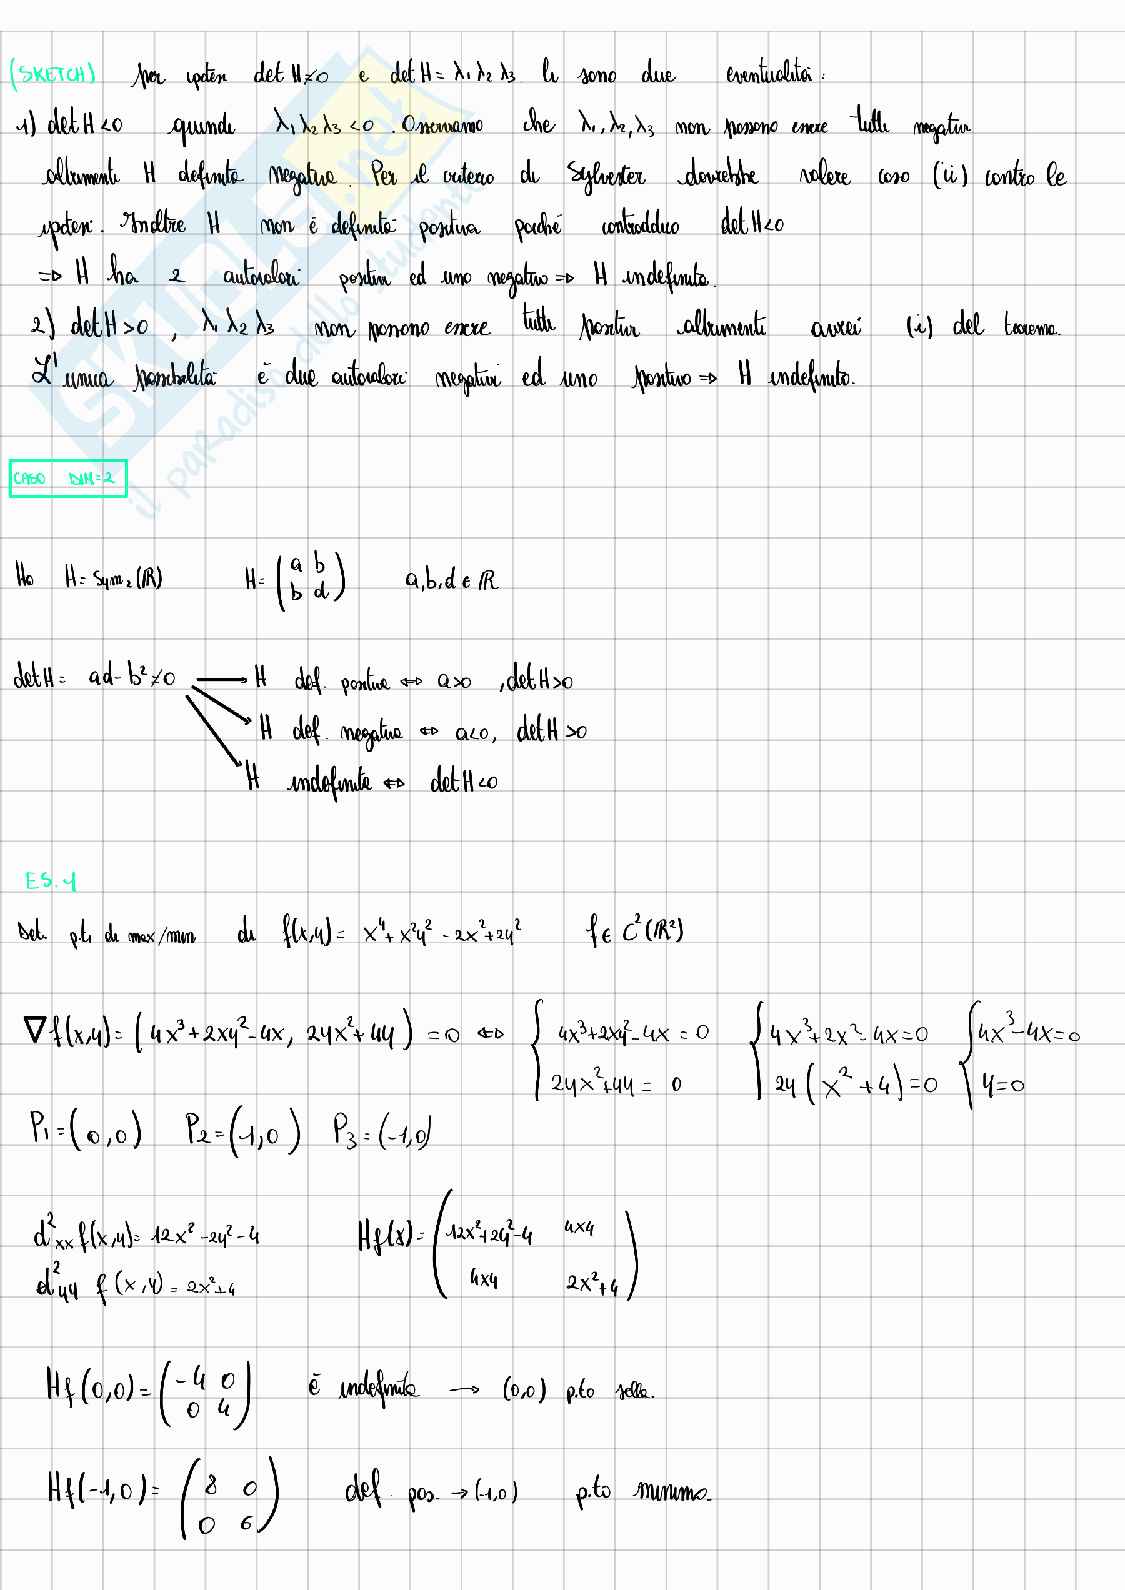 (SKETCH) per ipotesi det H≠0 e det H = λ₁ λ₂ λ₃ ci sono due eventualità:
1) det H<0 quindi λ₁ λ₂ λ₃ <0. Osserviamo che λ₁, λ₂, λ₃ non possono essere tutti negativi
altrimenti H definita negativa. Per il criterio di Sylvester dovrebbe valere caso (ii) contro le
ipotesi. Inoltre H non è definita positiva poiché contraddico det H<0
⇒ H ha 2 autovalori positivi ed uno negativo ⇒ H indefinita.
2) det H>0, λ₁ λ₂ λ₃ non possono essere tutti positivi altrimenti avrei (i) del teorema.
L'unica possibilità è due autovalori negativi ed uno positivo ⇒ H indefinita.
SKUOLA.net
il paradiso dello studente
CASO DIM=2
Ho H = Sym₂(ℝ) H = (a b; b d) a,b,d ∈ ℝ
det H = ad - b² ≠ 0 → H def. positiva ⇔ a>0, det H>0
H def. negativa ⇔ a<0, det H>0
H indefinita ⇔ det H<0
ES. 1
Det. p.ti di max/min di f(x,y) = x⁴+x²y²-2x²+2y² f ∈ C²(ℝ²)
∇f(x,y) = (4x³+2xy²-4x, 2yx²+4y) = 0 ⇔ { 4x³+2xy²-4x = 0 { 4x³+2x²-4x=0 { 4x³-4x=0
2yx²+4y = 0 2y(x²+4)=0 y=0
P₁=(0,0) P₂=(-1,0) P₃=(-1,0)
d²xx f(x,y) = 12x²-2y²-4 Hf(x) = (12x²+2y²-4 4xy
d²yy f(x,y) = 2x²+4 4xy 2x²+4)
Hf(0,0) = (-4 0; 0 4) è indefinita → (0,0) p.to sella.
Hf(-1,0) = (8 0; 0 6) def. pos. → (-1,0) p.to minimo.